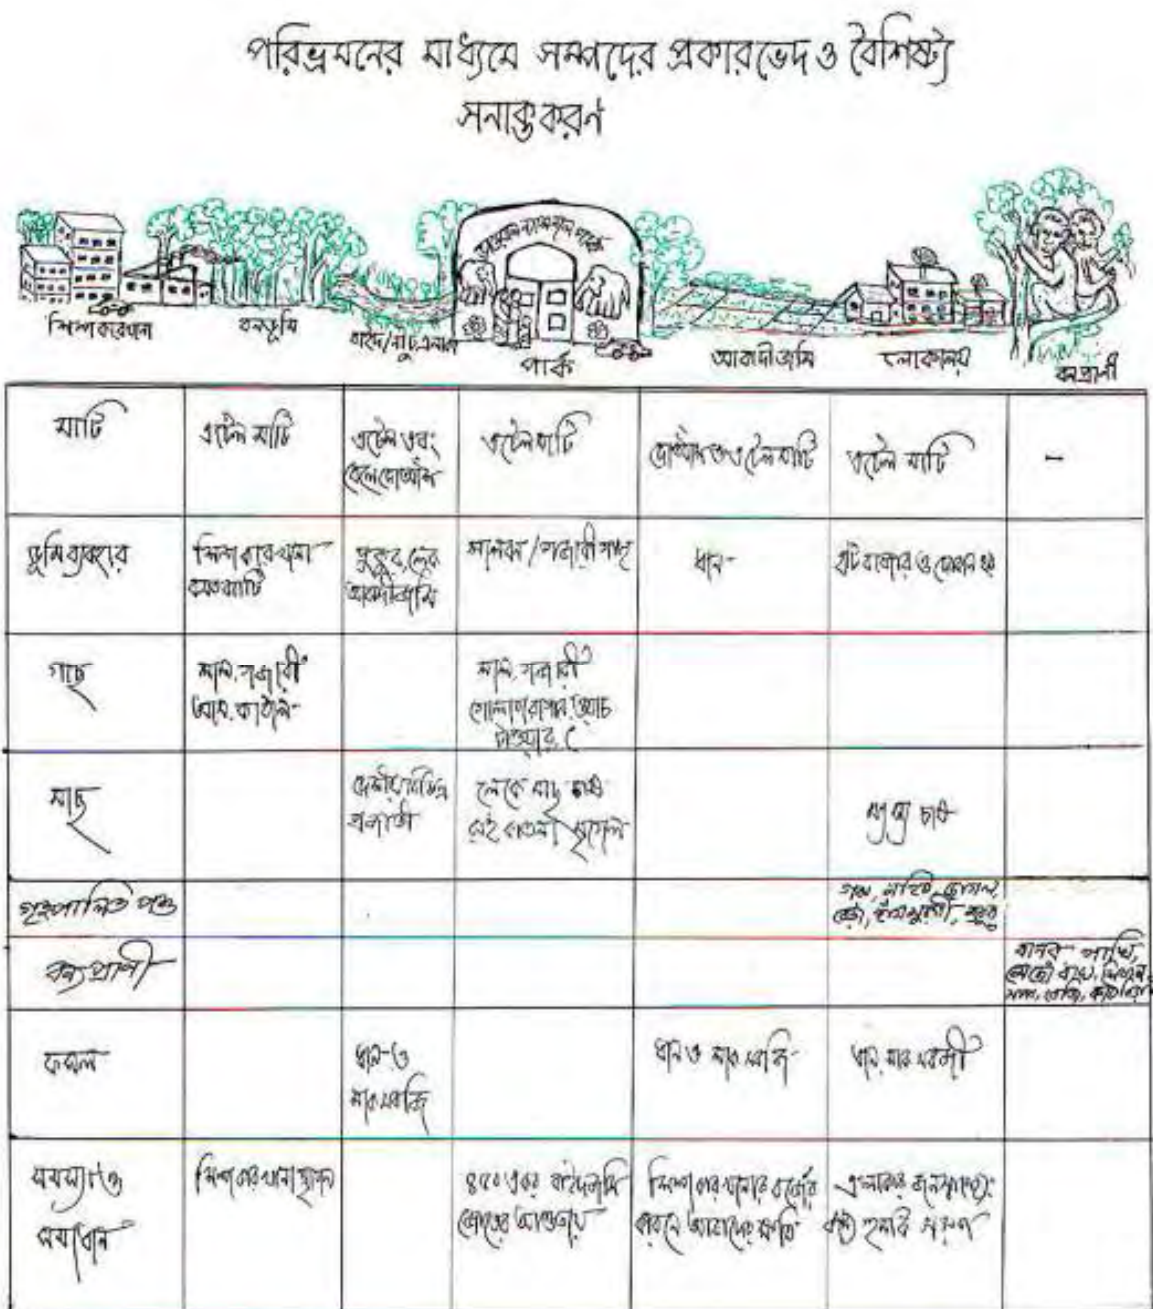 পরিভ্রমনের মাধ্যমে সম্পদের প্রকারভেদ ও বৈশিষ্ট্য
সনাক্তকরণ
ন্যাশনাল পার্ক
শিল্পকারখানা
বনভূমি
বাইদ/নীচু এলাকা
পার্ক
আবাদী জমি
লোকালয়
বন্যপ্রাণী
মাটি
এটেল মাটি
এটেল এবং
বেলে দোআঁশ
এটেল মাটি
দোআঁশ ও এটেল মাটি
এটেল মাটি
-
ভূমি ব্যবহার
শিল্প কারখানা
বসতবাটি
পুকুর, লেক
আবাদী জমি
শালবন / গজারী গাছ
ধান
হাট বাজার ও
গাছ
শাল, গজারী
আম, কাঠাল
শাল, গজারী
গোলাপ বাগান, ওয়াচ
টাওয়ার,
মাছ
দেশীয় বিভিন্ন
প্রজাতী
লেকে মাছ চাষ
রুই কাতলা মৃগেল
মৎস্য চাষ
গৃহপালিত পশু
গরু, মহিষ, ছাগল,
ভেড়া, হাঁসমুরগী, কুকুর
বন্যপ্রাণী
বানর, পাখি,
মেছো বাঘ, শিয়াল,
সাপ, বেজি,
ফসল
ধান ও
শাকসবজি
ধান ও শাক সবজি
ধান, শাক সবজী
সমস্যা ও
সমাধান
শিল্প কারখানা স্থাপন
একর বাইদ জমি
লেকের আওতায়
শিল্প কারখানার বর্জ্যের
কারনে আবাদের ক্ষতি
এলাকার জনসংখ্যা